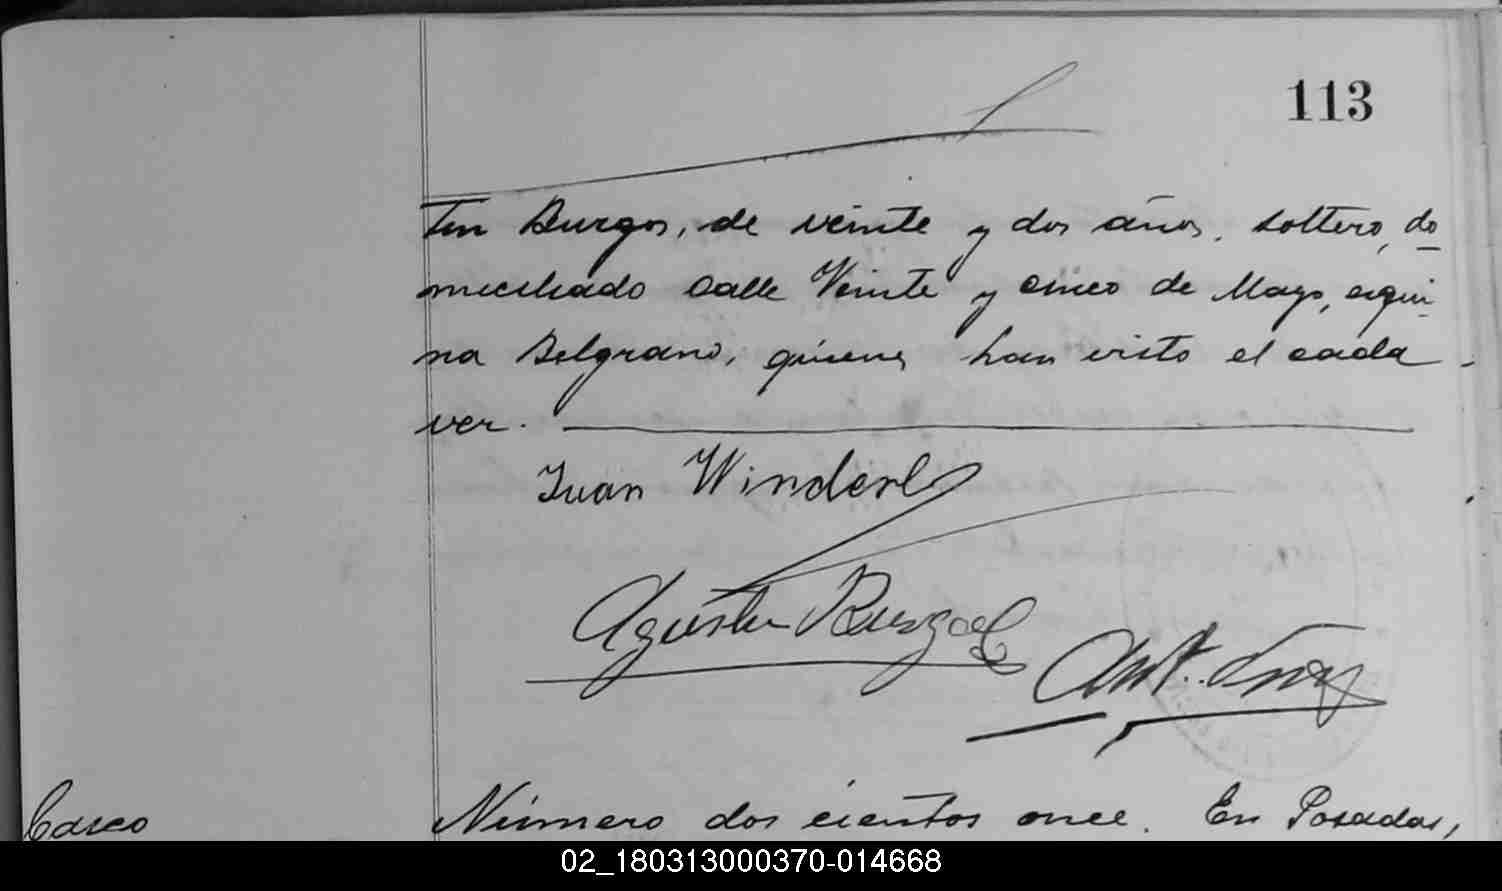 113
tin Burgos, de veinte y dos años, soltero, do
miciliado calle Veinte y cinco de Mayo, esqui
na Belgrano, quienes han visto el cada
ver.
Juan Winderl
Agustin Burgos
Ant.
Casco
Número dos cientos once. En Posadas,
02_180313000370-014668